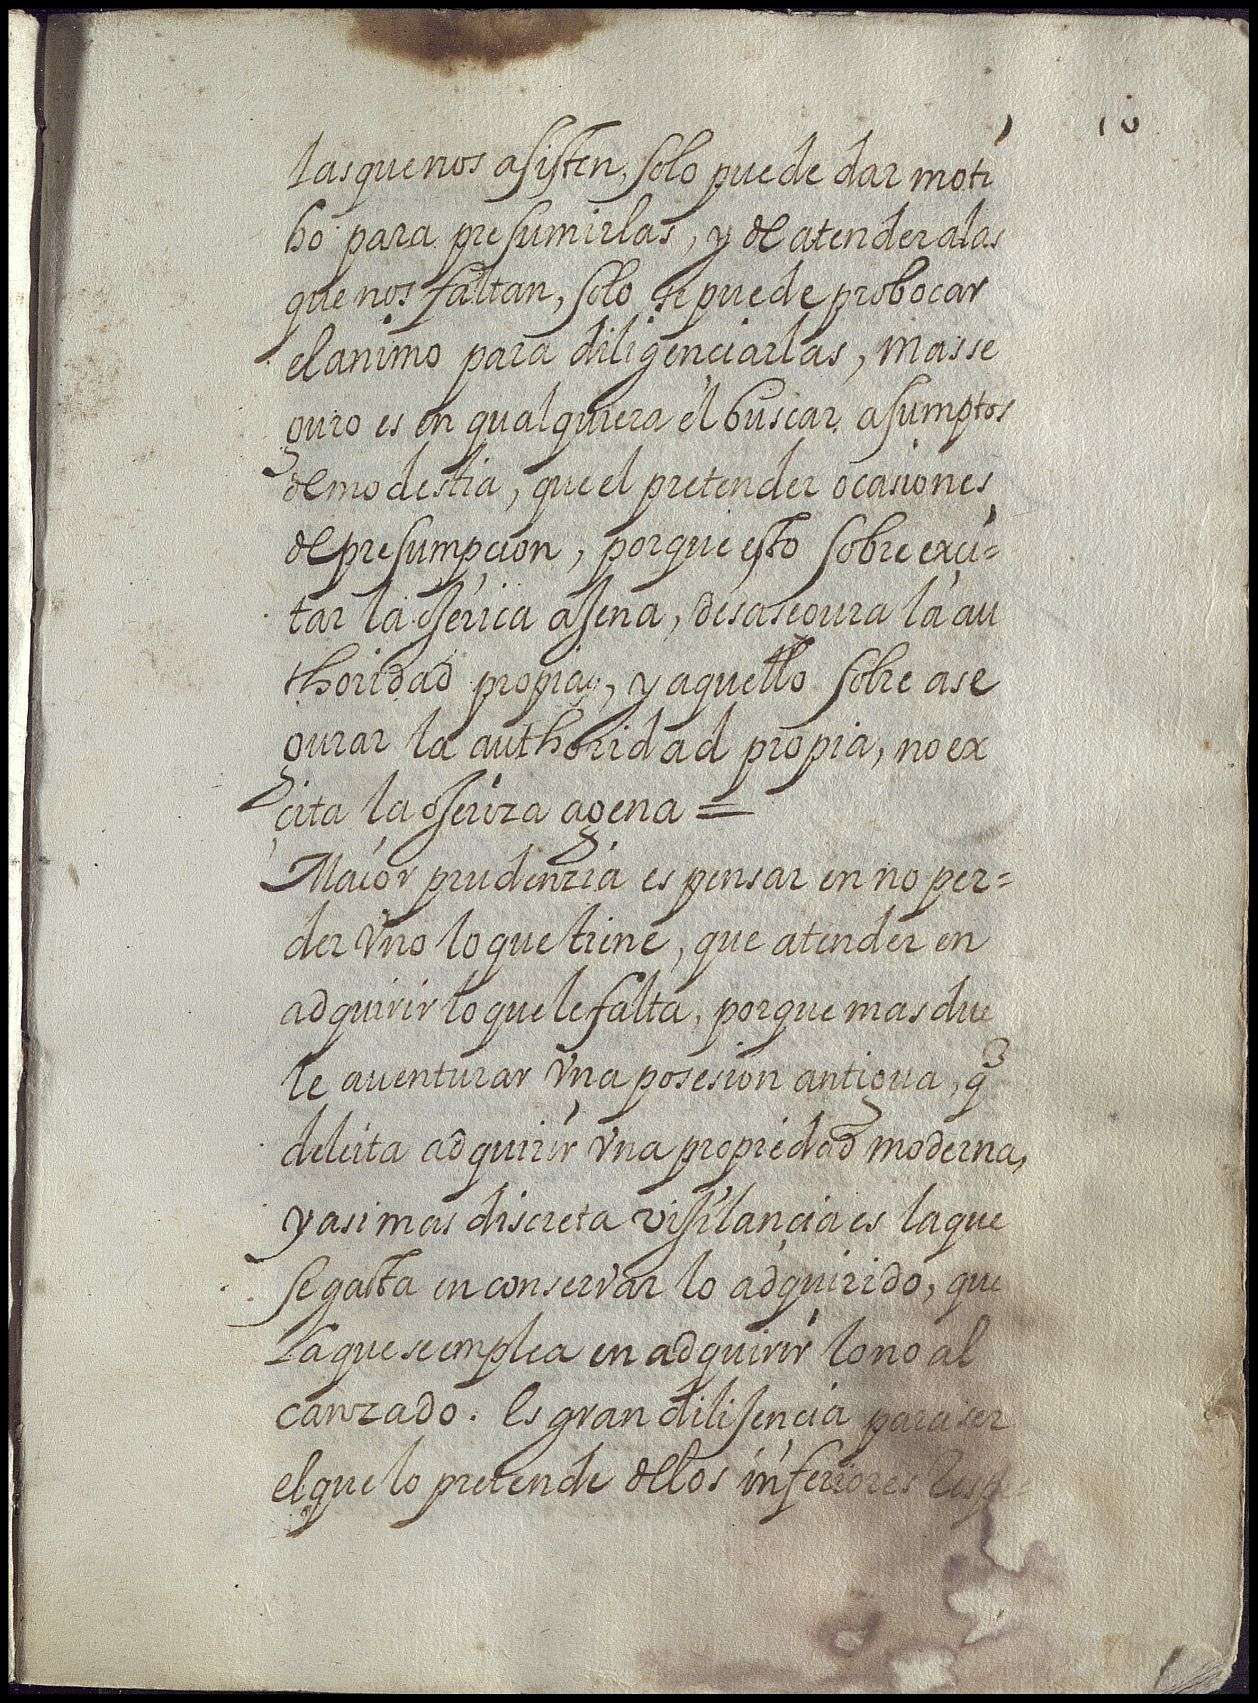 10
las que nos asisten, solo puede dar moti
bo para presumirlas, y de atender a las
que nos faltan, solo se puede probocar
el animo para diligenciarlas, mas se
guro es en qualquiera el buscar asumptos
de modestia, que el pretender ocasiones
de presumpçion, porque esto sobre exçi=
tar la ajena, desasegura la au
thoridad propia, y aquello sobre ase
gurar la authoridad propia, no ex
çita la agena =
Maior prudenzia es pensar en no per=
der Vno lo que tiene, que atender en
adquirir lo que le falta, porque mas due
le auenturar Vna posesion antigua, q
deleita adquirir Vna propriedad moderna,
y asi mas discreta vijilançia es la que
se gasta en conservar lo adquirido, que
la que se emplea en adquirir lo no al
canzado. Es gran dilijençia para ser
el que lo pretende de los inferiores